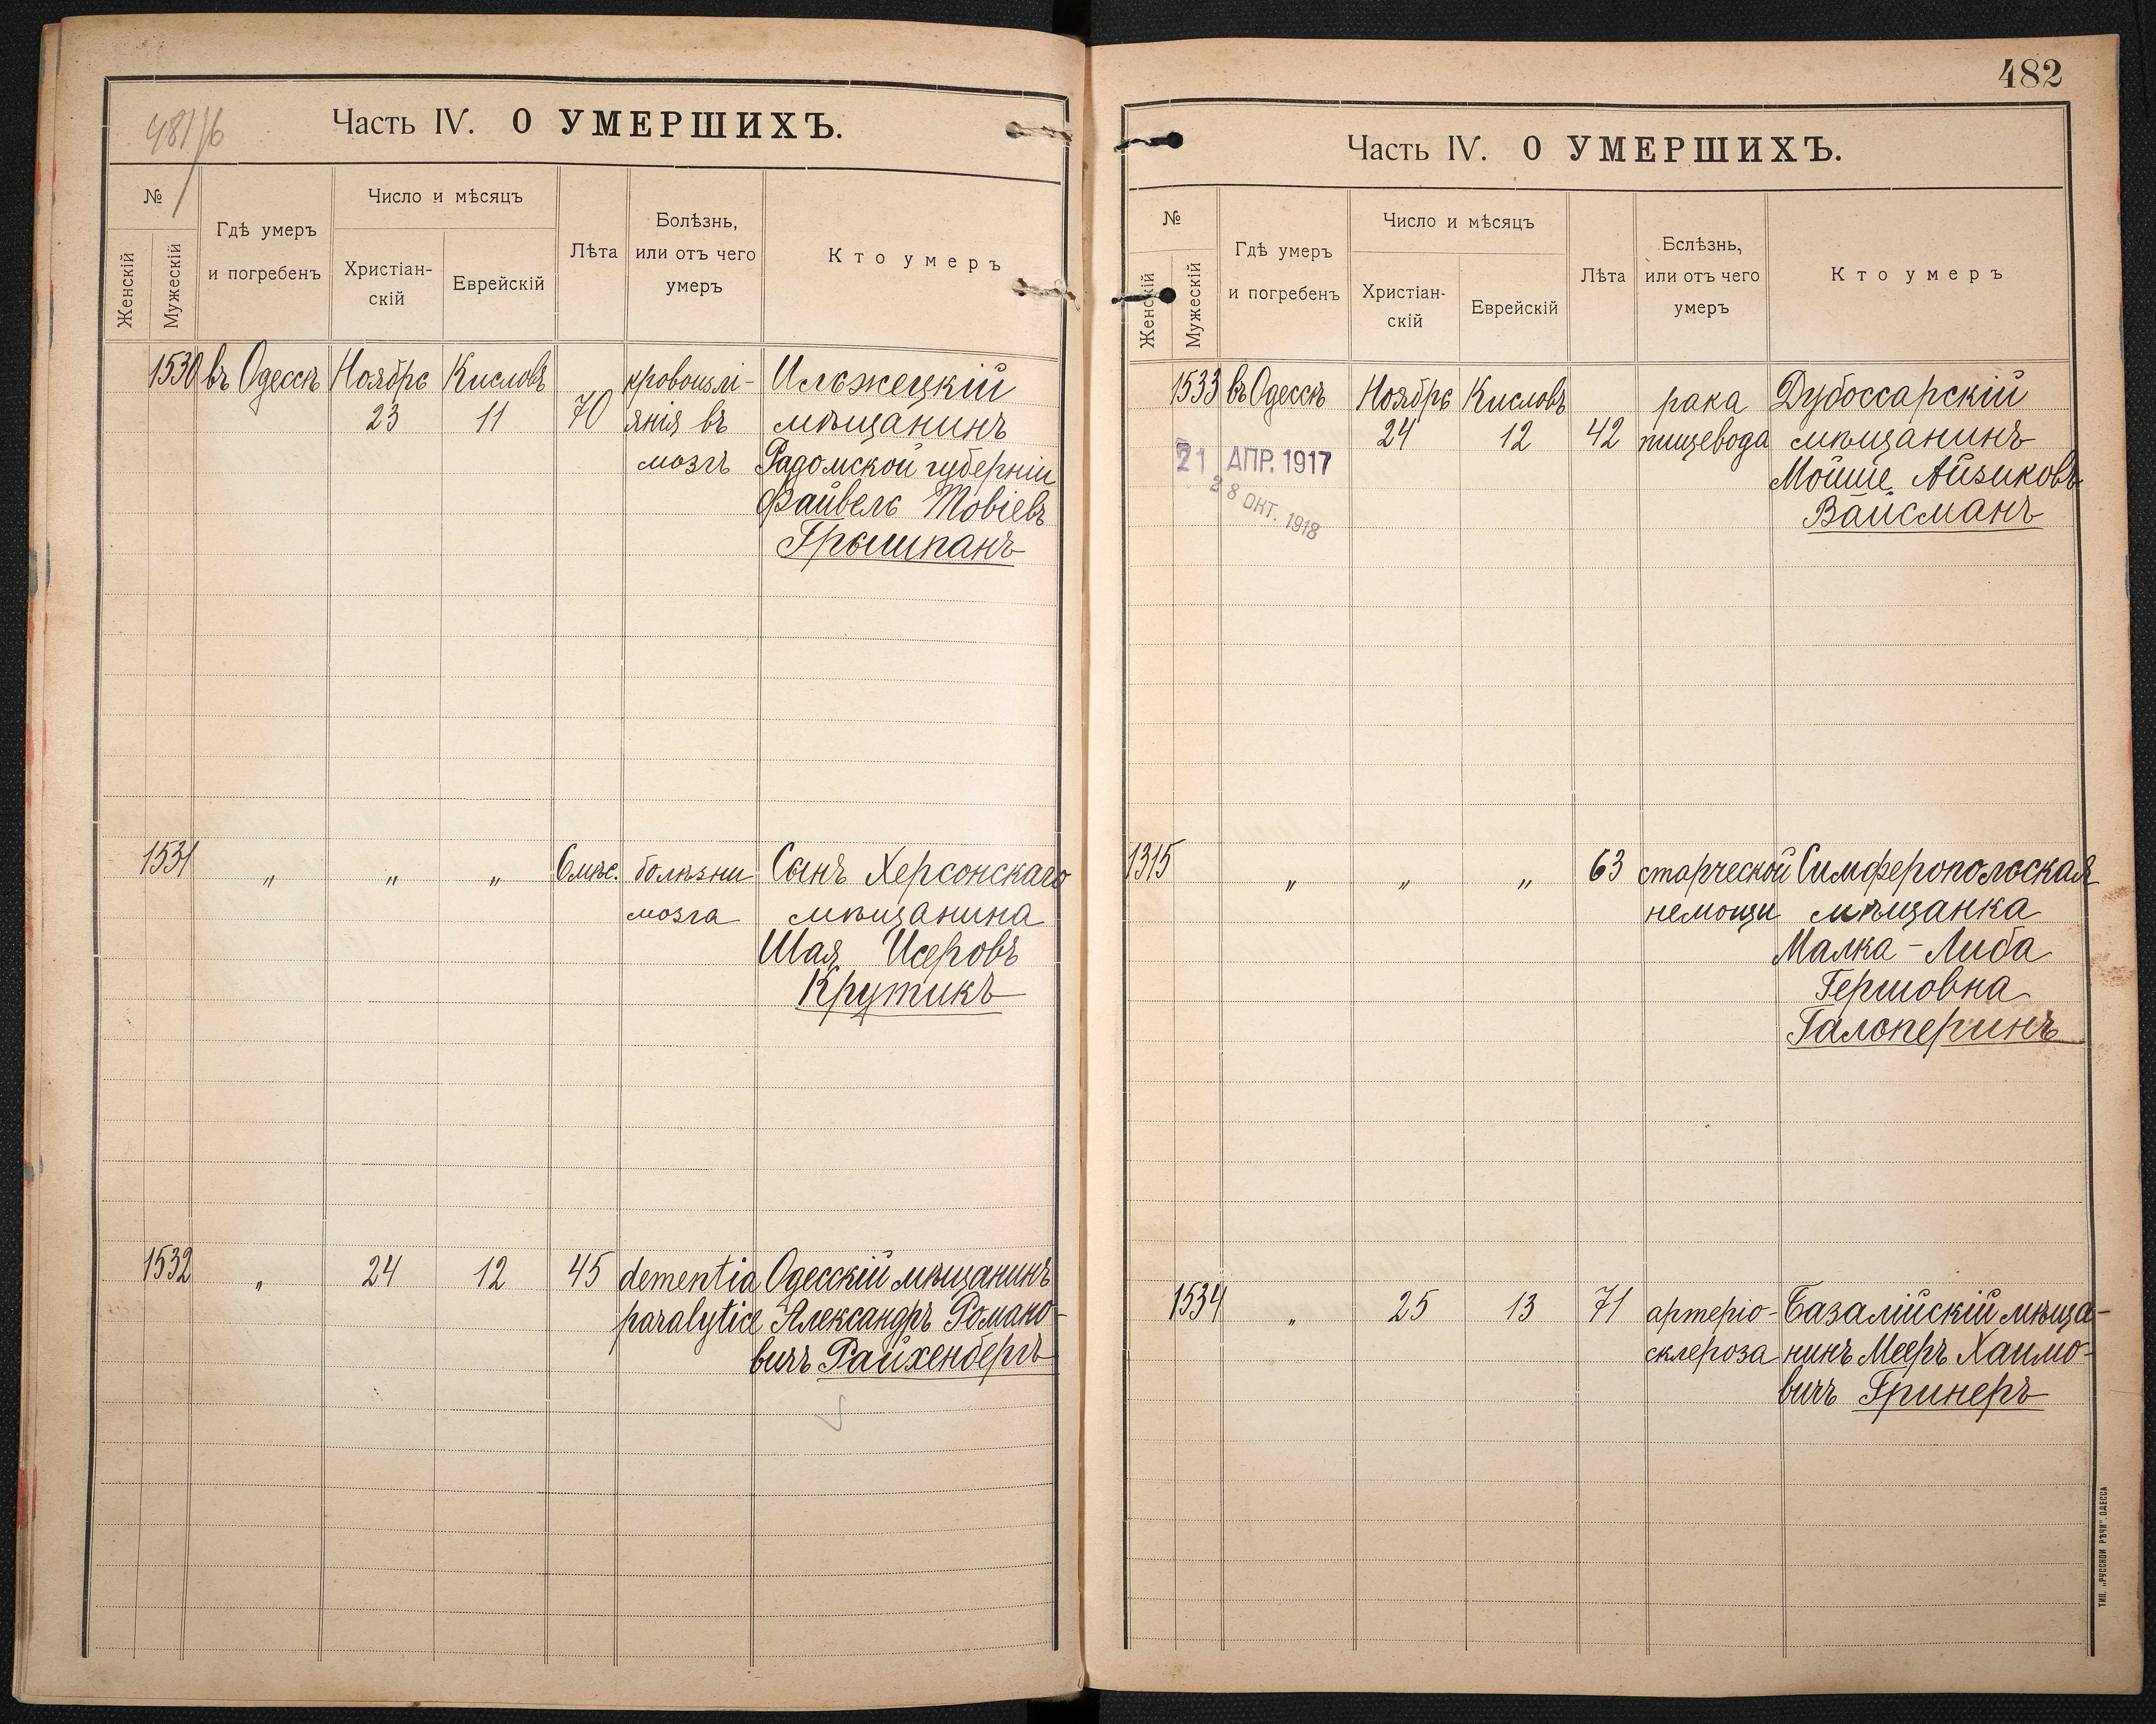 481/6
Часть IV. О УМЕРШИХЪ.
№
Женскій
Мужескій
Гдѣ умеръ
и погребенъ
Число и мѣсяцъ
Христіан-
скій
Еврейскій
Лѣта
Болѣзнь,
или отъ чего
умеръ
Кто умеръ
1530 въ Одессѣ Ноября Кисловъ кровоизлі- Ильжецкій
23 11 70 янія въ мѣщанинъ
мозгъ Радомской губерніи
Файвель Товіевъ
Грышпанъ
1531 " " " 6 мѣс. болѣзни Сынъ Херсонскаго
мозга мѣщанина
Шая Исеровъ
Крутикъ
1532 " 24 12 45 dementia Одесскій мѣщанинъ
paralytica Александръ Романо-
вичъ Райхенбергъ
482
Часть IV. О УМЕРШИХЪ.
№
Женскій
Мужескій
Гдѣ умеръ
и погребенъ
Число и мѣсяцъ
Христіан-
скій
Еврейскій
Лѣта
Бслѣзнь,
или отъ чего
умеръ
Кто умеръ
1533 въ Одессѣ Ноября Кисловъ рака Дубоссарскій
24 12 42 пищевода мѣщанинъ
21 АПР. 1917 Мойше Айзиковъ
28 ОКТ. 1918 Вайсманъ
1315 " " " 63 старческой Симферопольская
немощи мѣщанка
Малка-Либа
Гершовна
Гальперинъ
1534 " 25 13 71 артеріо- Базалійскій мѣща-
склероза нинъ Мееръ Хаимо-
вичъ Гринеръ
ТИП. „РУССКОЙ РѢЧИ" ОДЕССА